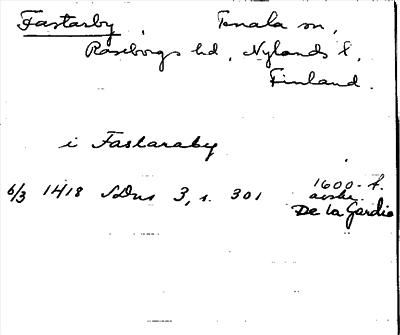 Fastarby, Tenala sn,
Raseborgs hd, Nylands l,
Finland.
i Fastaraby
6/3 1418 SDns 3, s. 301
1600-t.
avskr.
De la Gardie